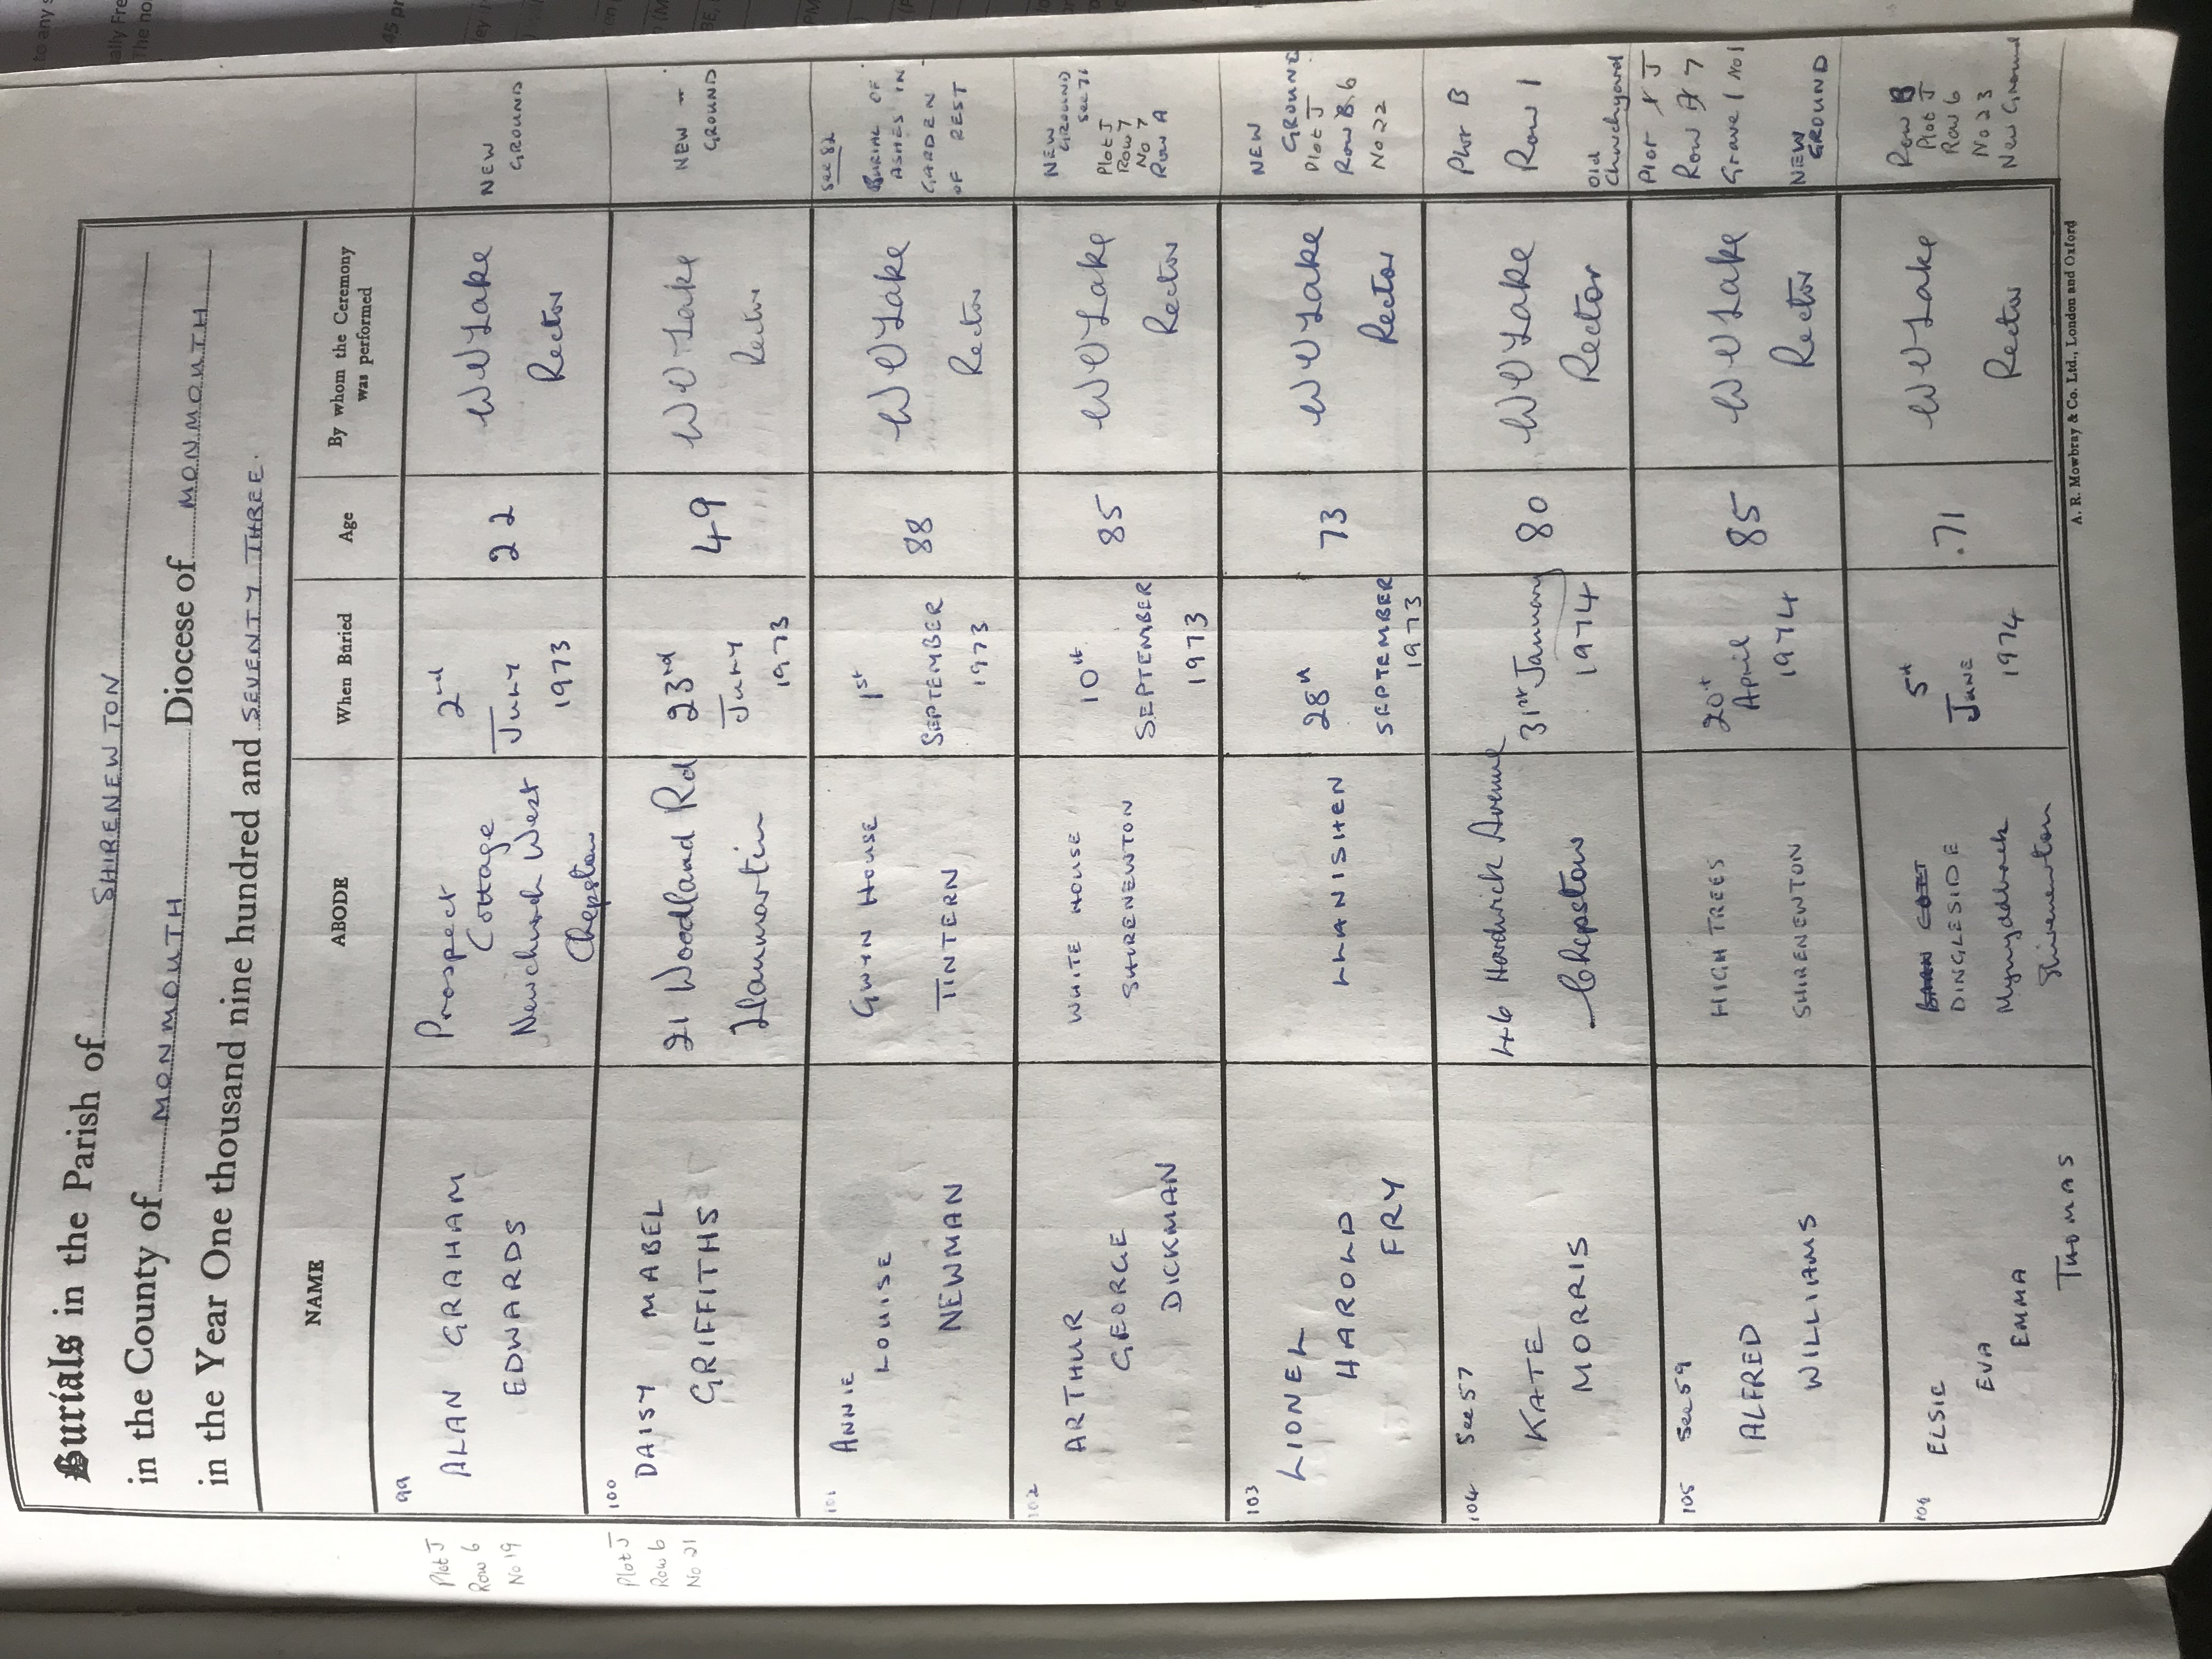 Burials in the Parish of SHIRENEWTON
in the County of MONMOUTH Diocese of MONMOUTH
in the Year One thousand nine hundred and SEVENTY THREE.
NAME
ABODE
When Buried
Age
By whom the Ceremony
was performed
Plot J
Row 6
No 19
99
ALAN GRAHAM
EDWARDS
Prospect
Cottage
Newchurch West
Chepstow
2nd
JULY
1973
22
W E Lake
Rector
NEW
GROUND
Plot J
Row 6
No 21
100
DAISY MABEL
GRIFFITHS
21 Woodland Rd
Llanmartin
23rd
JULY
1973
49
W E Lake
Rector
NEW
GROUND
101
ANNIE
LOUISE
NEWMAN
GWYN HOUSE
TINTERN
1st
SEPTEMBER
1973
88
W E Lake
Rector
See 82
BURIAL OF
ASHES IN
GARDEN
OF REST
102
ARTHUR
GEORGE
DICKMAN
WHITE HOUSE
SHIRENEWTON
10th
SEPTEMBER
1973
85
W E Lake
Rector
NEW
GROUND
See 71
Plot J
Row 7
No 7
Row A
103
LIONEL
HAROLD
FRY
LLANISHEN
28th
SEPTEMBER
1973
73
W E Lake
Rector
NEW
GROUND
Plot J
Row B 6
No 22
104 See 57
KATE
MORRIS
46 Hardwick Avenue
Chepstow
31st January
1974
80
W E Lake
Rector
Plot B
Row 1
Old
Churchyard
105 See 59
ALFRED
WILLIAMS
HIGH TREES
SHIRENEWTON
20th
April
1974
85
W E Lake
Rector
Plot J
Row 7
Grave 1 No 1
NEW
GROUND
106
ELSIE
EVA
EMMA
THOMAS
DINGLESIDE
Mynyddbach
Shirenewton
5th
JUNE
1974
71
W E Lake
Rector
Row B
Plot J
Row 6
No 23
New Ground
A. R. Mowbray & Co. Ltd., London and Oxford